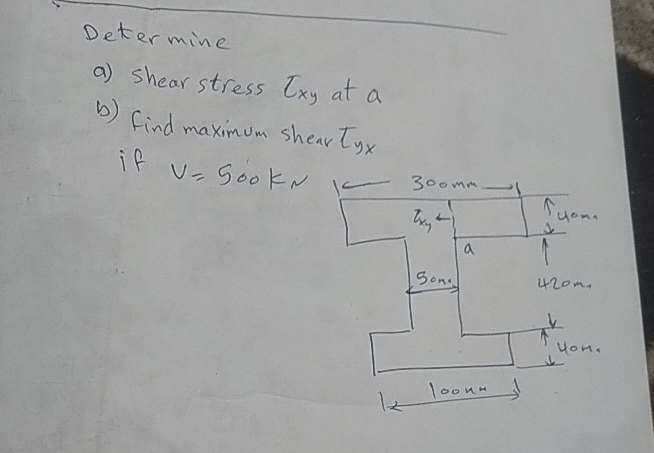 Determine
a) shear stress τxy at a
b) find maximum shear τyx
if V = 500 kN
300mm
τxy
40m.
a
50m.
420m.
40m.
100mm